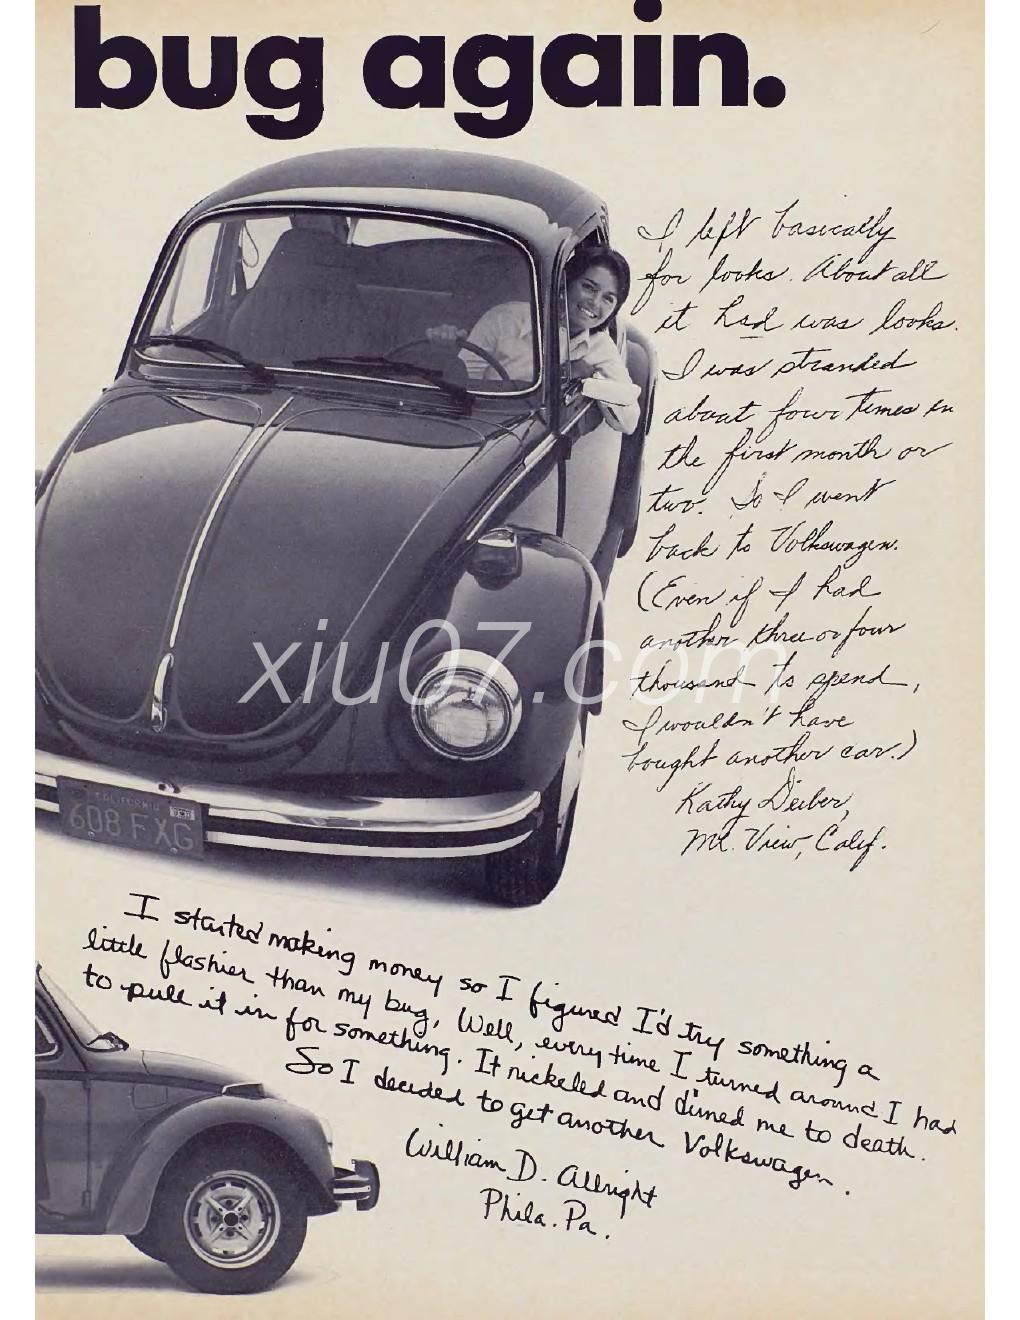 bug again.
I left basically
for looks. About all
it had was looks.
I was stranded
about four times in
the first month or
two. So I went
back to Volkswagen.
(Even if I had
another three or four
thousand to spend,
I wouldn't have
bought another car.)
Kathy Deiber,
Mt. View, Calif.
xiu07.com
CALIFORNIA
608 FXG
I started making money so I figured I'd try something a
little flashier than my bug, Well, every time I turned around I had
to pull it in for something. It nickeled and dimed me to death.
So I decided to get another Volkswagen.
William D. Albright
Phila. Pa.